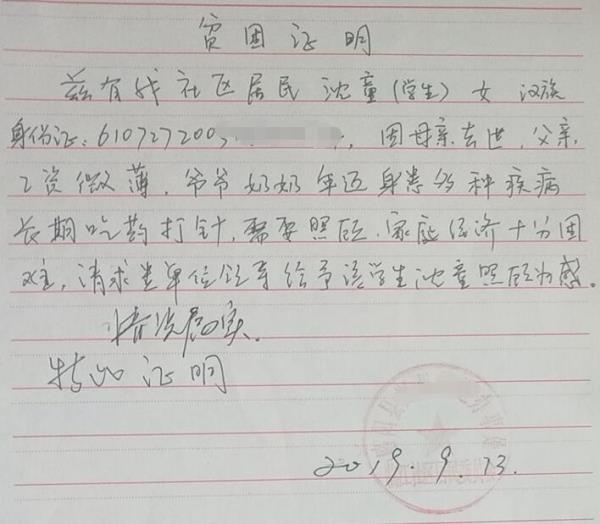 贫困证明
兹有我社区居民沈童(学生)女 汉族
身份证:610727200 ,因母亲去世,父亲
工资微薄,爷爷奶奶年迈身患多种疾病
长期吃药打针,需要照顾.家庭经济十分困
难,请求贵单位领导给予该学生沈童照顾为感。
情况属实.
特此证明
2019.9.13.